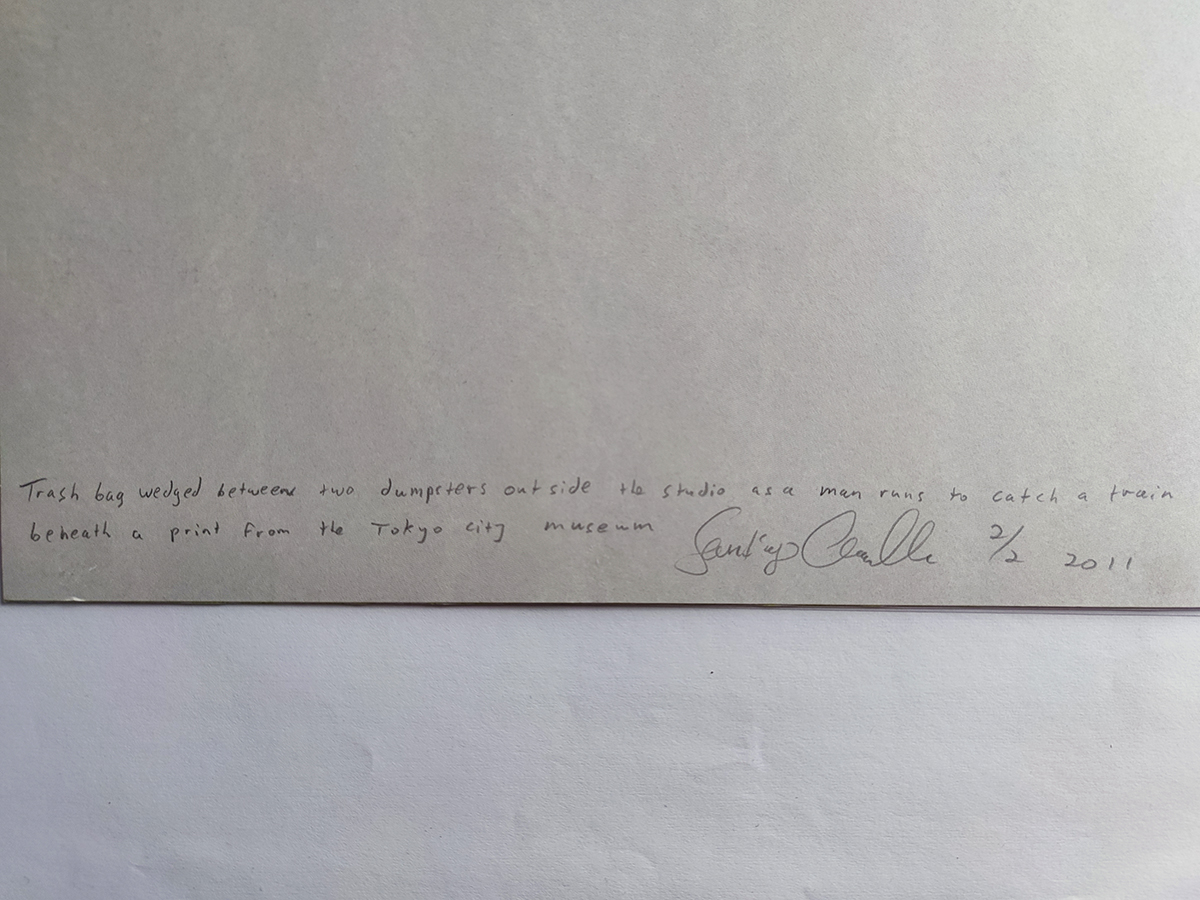 Trash bag wedged between two dumpsters outside the studio as a man runs to catch a train
beneath a print from the Tokyo city museum
2/2 2011